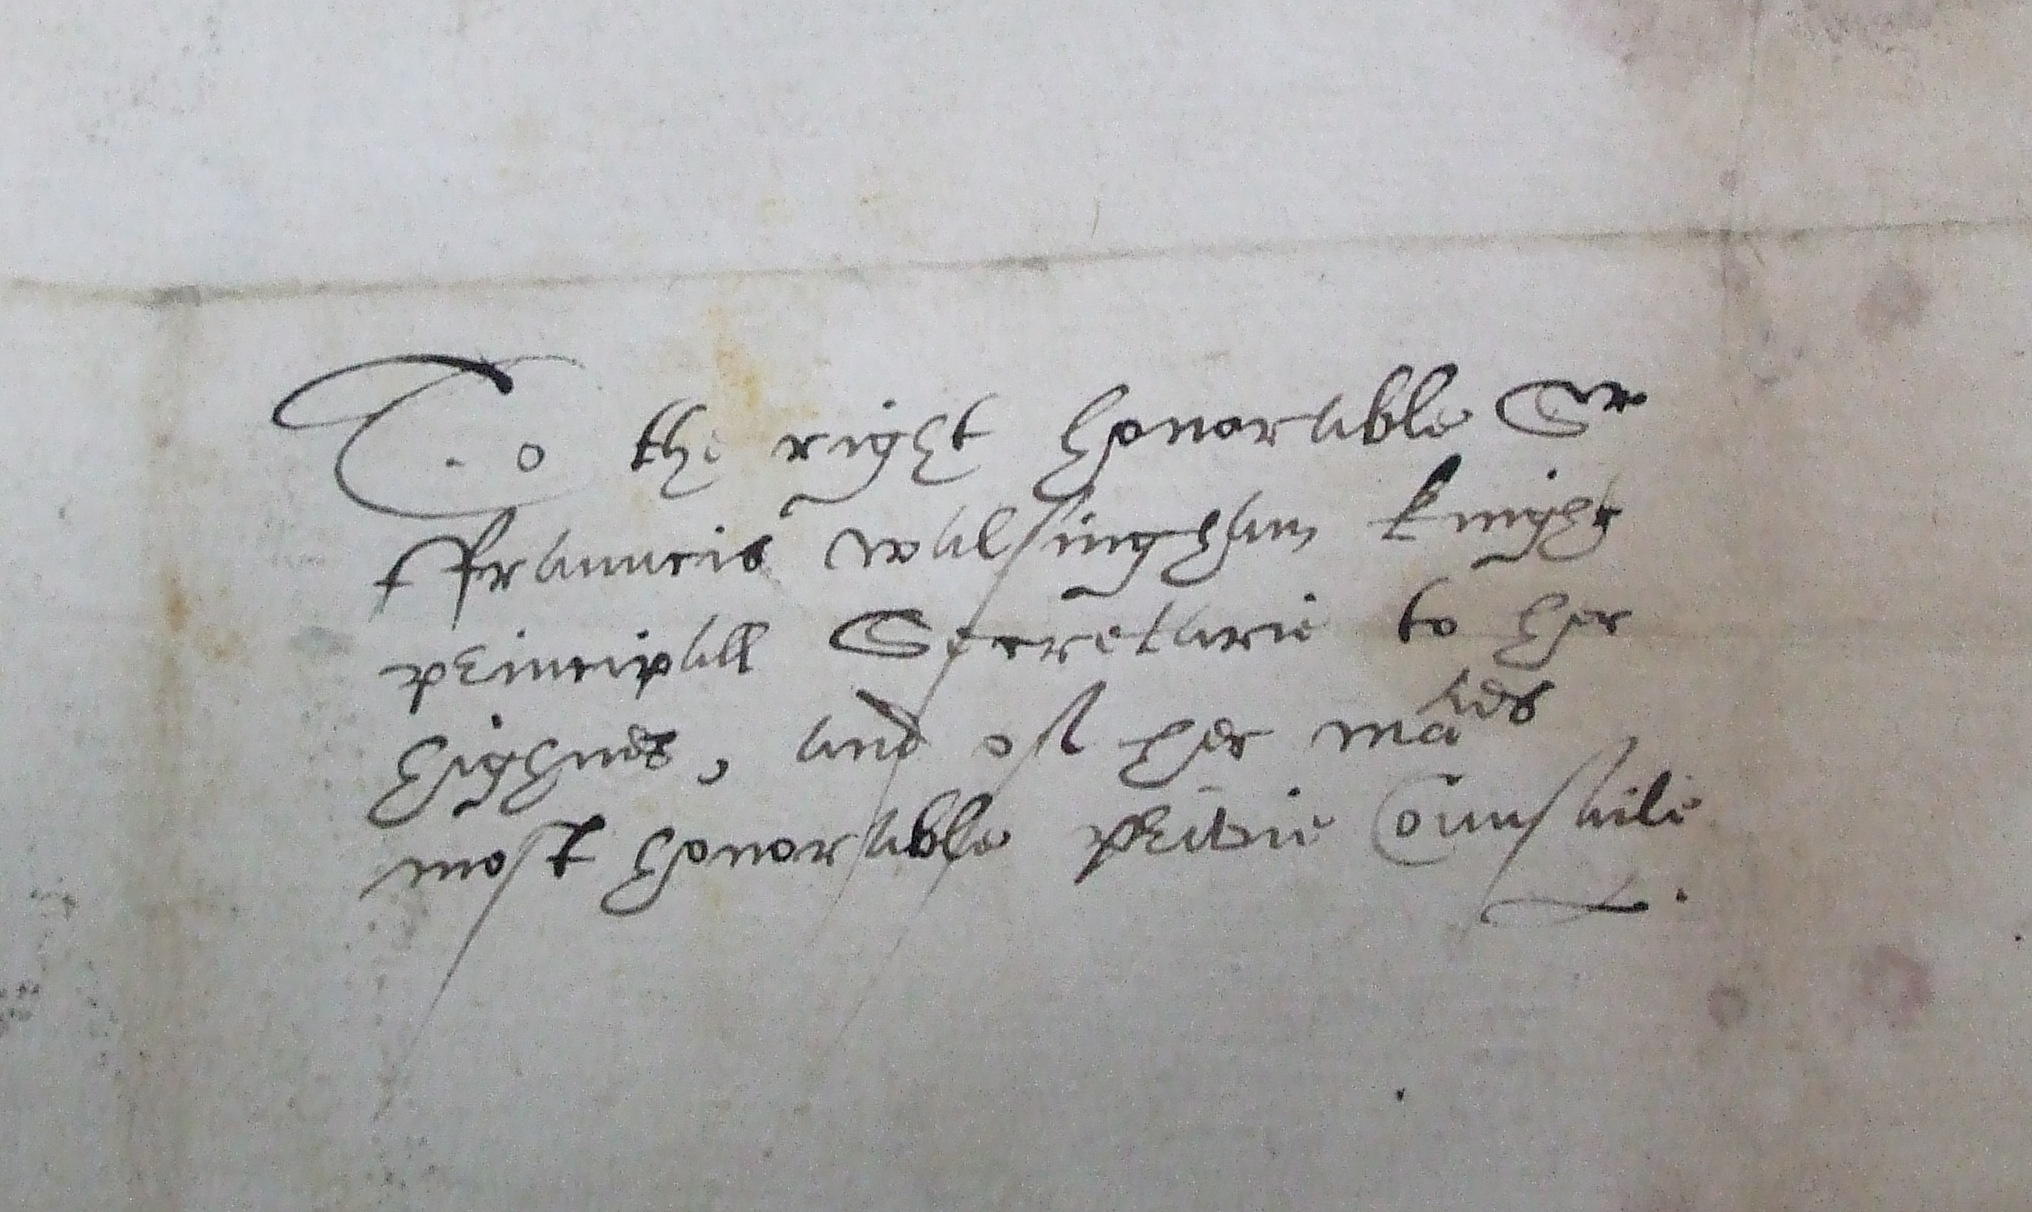 To the right honorable Sr
ffrauncis walsingham knight
principall Secretarie to her
highnes, and of her maties
most honorable privie Counsaile